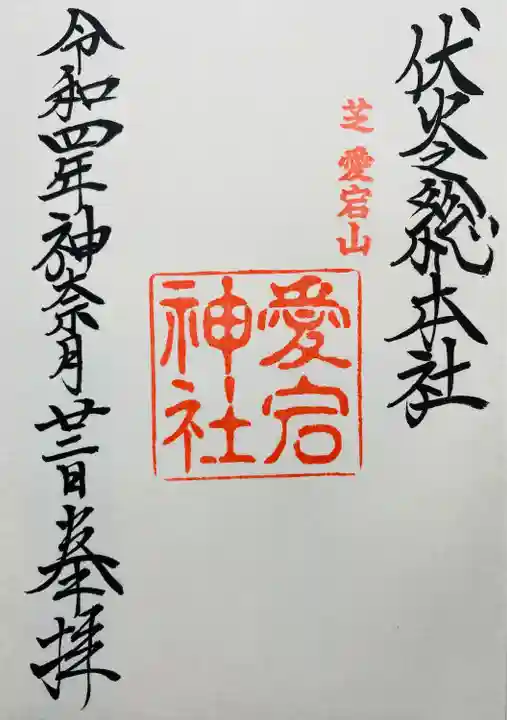 伏火之総本社
芝 愛宕山
愛宕
神社
令和四年神奈月廿三日奉拝